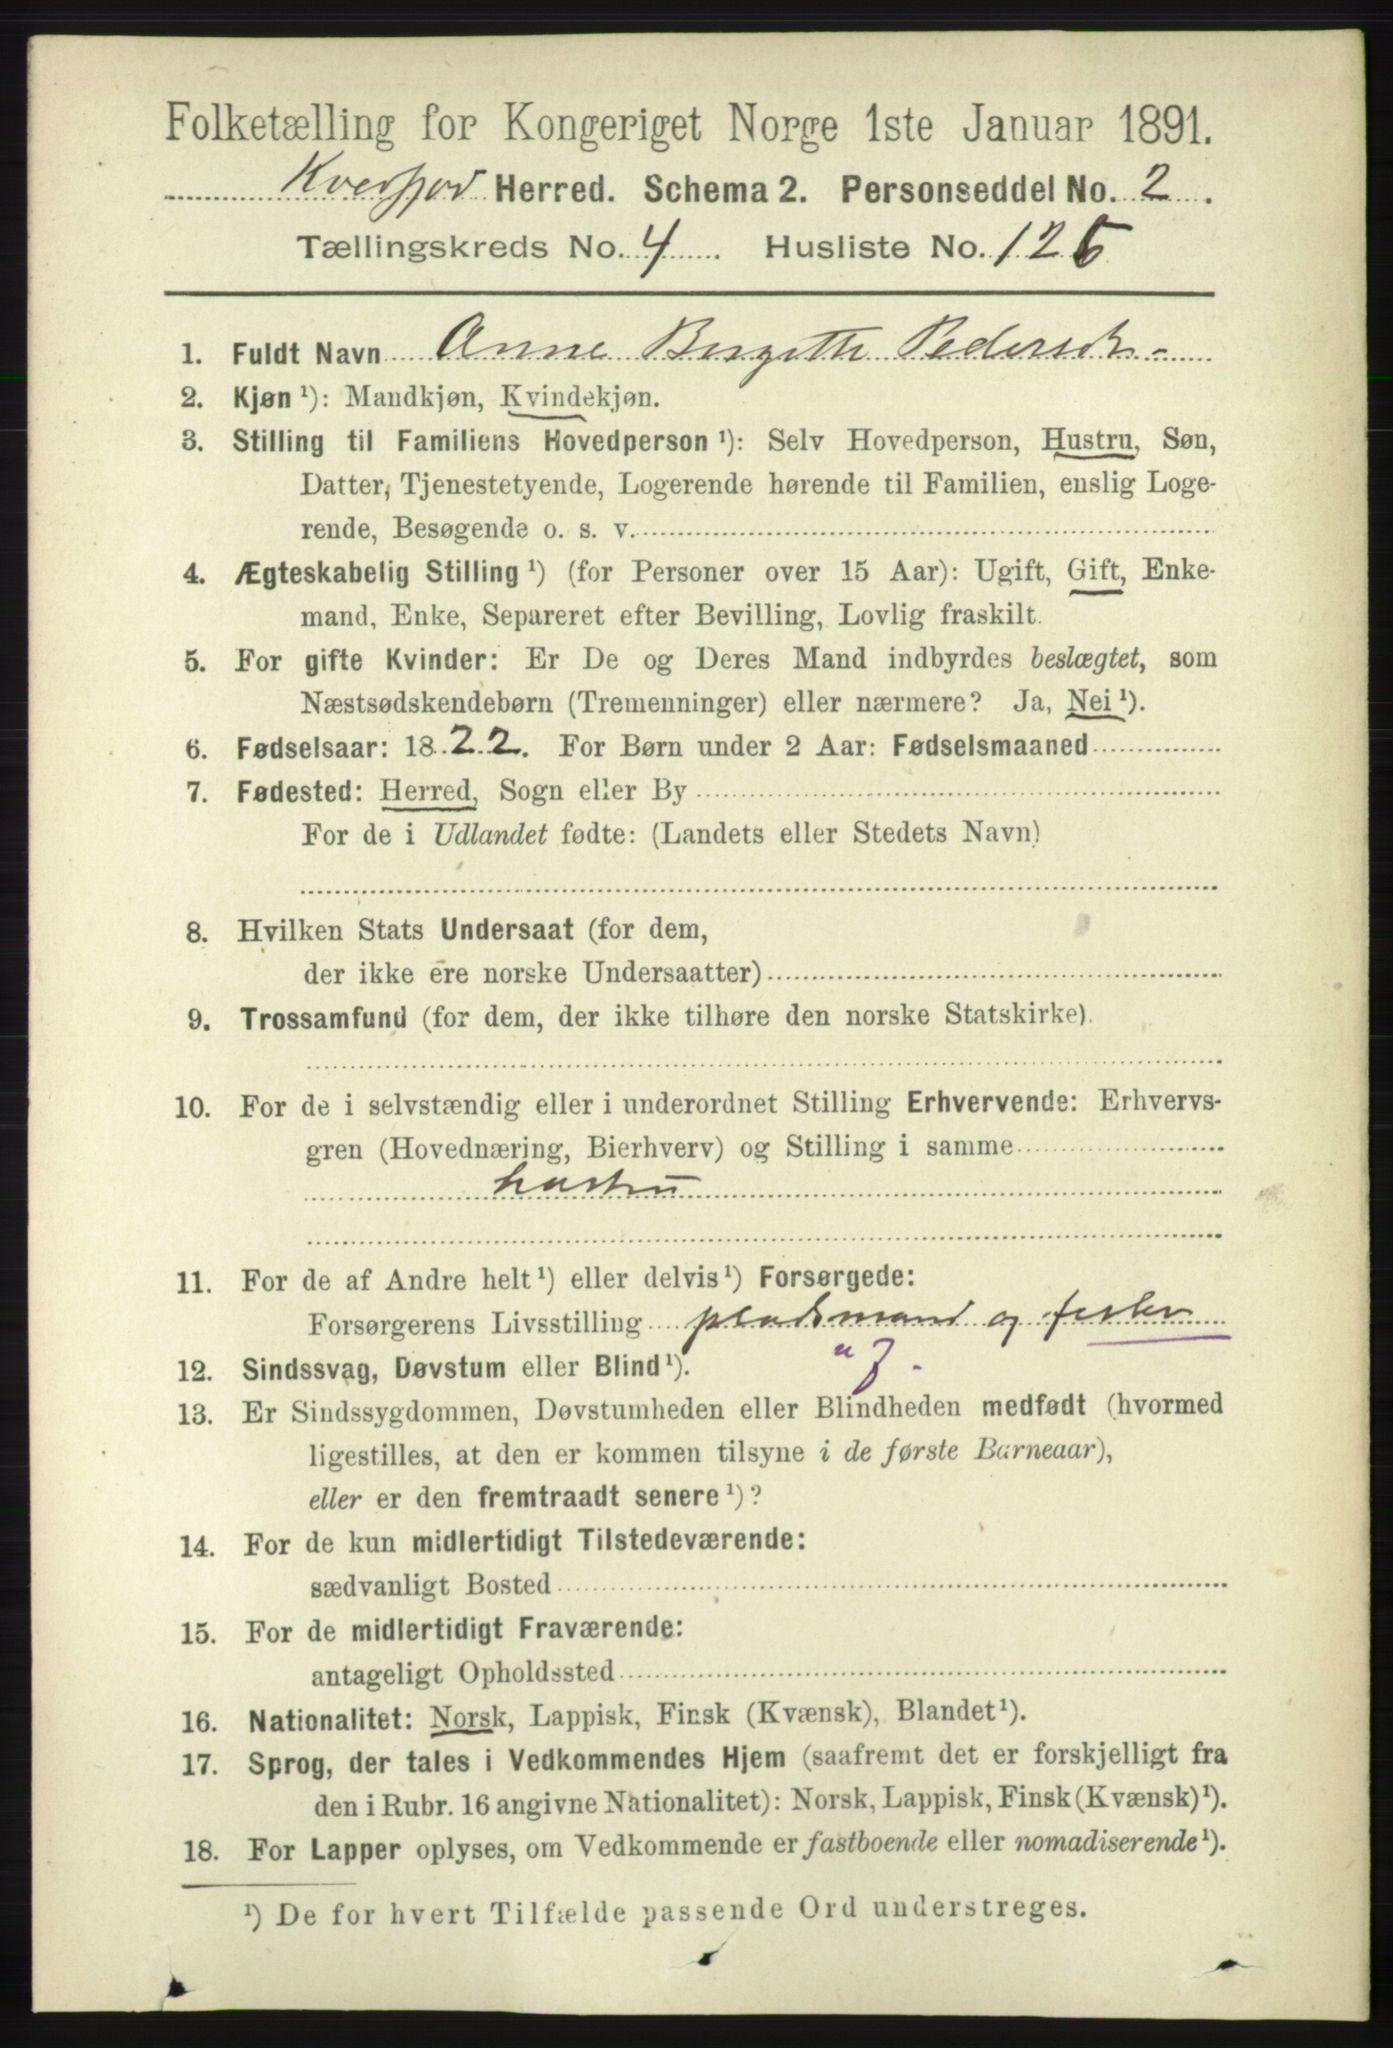 Folketælling for Kongeriget Norge 1ste Januar 1891.
Kvæfjord Herred. Schema 2. Personseddel No. 2.
Tællingskreds No. 4. Husliste No. 126
1. Fuldt Navn Anne Bergithe Pedersen
2. Kjøn ¹): Mandkjøn, Kvindekjøn.
3. Stilling til Familiens Hovedperson ¹): Selv Hovedperson, Hustru, Søn,
Datter, Tjenestetyende, Logerende hørende til Familien, enslig Loge-
rende, Besøgende o. s. v.
4. Ægteskabelig Stilling ¹) (for Personer over 15 Aar): Ugift, Gift, Enke-
mand, Enke, Separeret efter Bevilling, Lovlig fraskilt.
5. For gifte Kvinder: Er De og Deres Mand indbyrdes beslægtet, som
Næstsødskendebørn (Tremenninger) eller nærmere? Ja, Nei ¹).
6. Fødselsaar: 1822. For Børn under 2 Aar: Fødselsmaaned
7. Fødested: Herred, Sogn eller By
For de i Udlandet fødte: (Landets eller Stedets Navn)
8. Hvilken Stats Undersaat (for dem,
der ikke ere norske Undersaatter)
9. Trossamfund (for dem, der ikke tilhøre den norske Statskirke).
10. For de i selvstændig eller i underordnet Stilling Erhvervende: Erhvervs-
gren (Hovednæring, Bierhverv) og Stilling i samme
hustru
11. For de af Andre helt ¹) eller delvis ¹) Forsørgede:
Forsørgerens Livsstilling pladsmand og fisker
12. Sindssvag, Døvstum eller Blind ¹).
13. Er Sindssygdommen, Døvstumheden eller Blindheden medfødt (hvormed
ligestilles, at den er kommen tilsyne i de første Barneaar),
eller er den fremtraadt senere ¹)?
14. For de kun midlertidigt Tilstedeværende:
sædvanligt Bosted
15. For de midlertidigt Fraværende:
antageligt Opholdssted
16. Nationalitet: Norsk, Lappisk, Finsk (Kvænsk), Blandet ¹).
17. Sprog, der tales i Vedkommendes Hjem (saafremt det er forskjelligt fra
den i Rubr. 16 angivne Nationalitet): Norsk, Lappisk, Finsk (Kvænsk) ¹).
18. For Lapper oplyses, om Vedkommende er fastboende eller nomadiserende ¹).
¹) De for hvert Tilfælde passende Ord understreges.